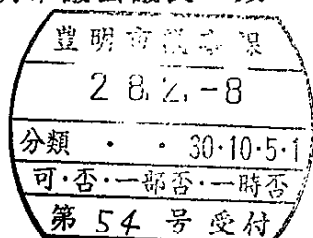 豊明市議事課
28.2.-8
分類 ・ ・ 30・10・5・1
可・否・一部否・一時否
第 54 号 受付